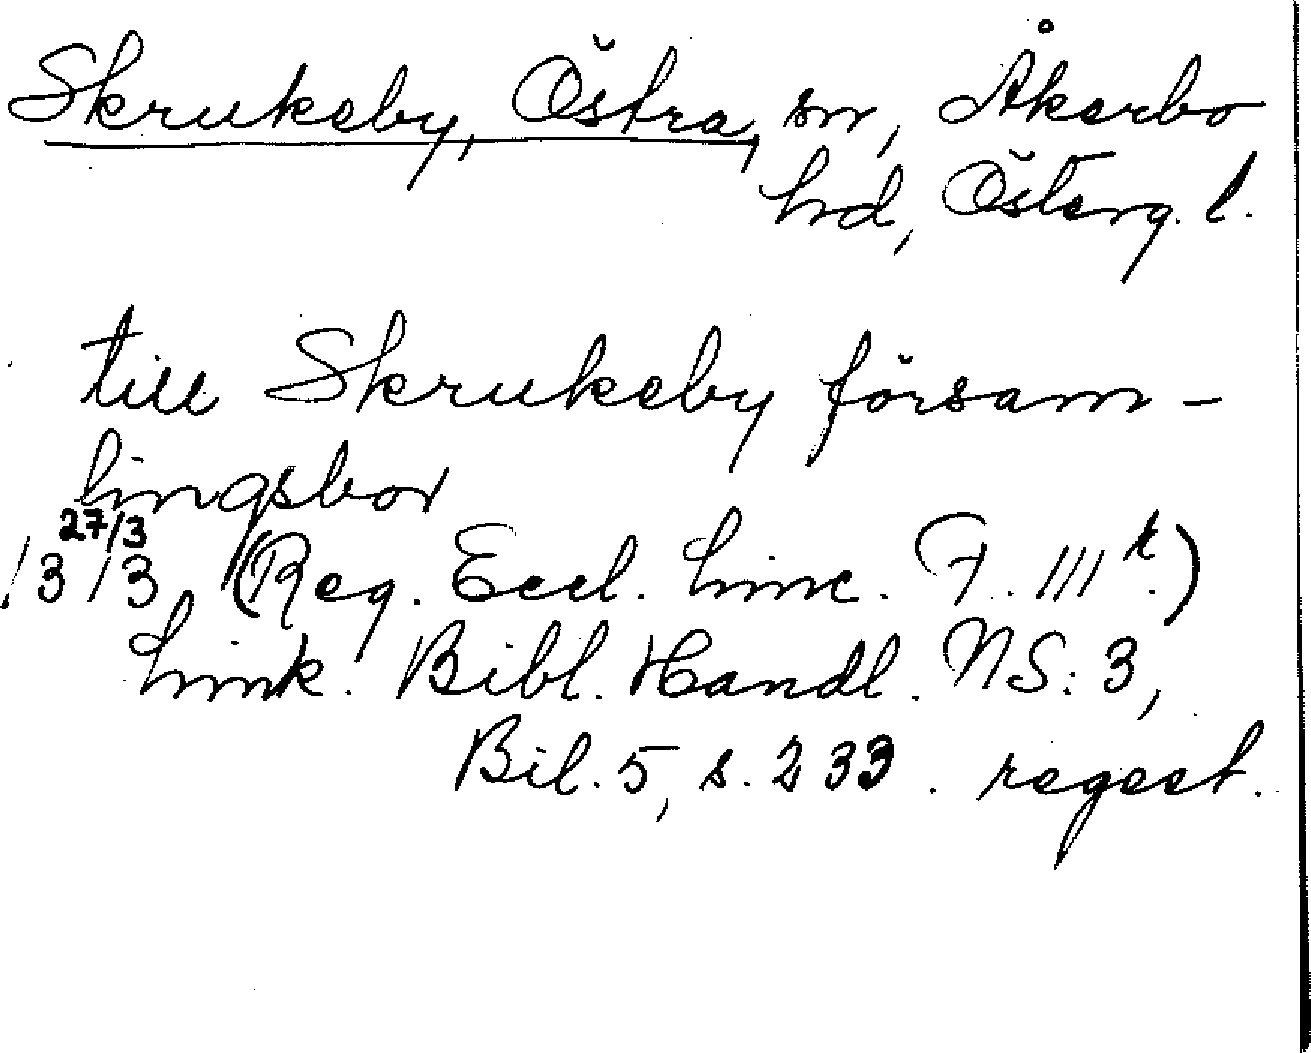 Skrukeby, Östra, sn, Åkerbo
hd, Österg. l.
till Skrukeby försam-
lingsbor
27/3
1313 (Reg. Eccl. Linc. F. III k.)
Link. Bibl. Handl. NS: 3,
Bil. 5, s. 233. regest.